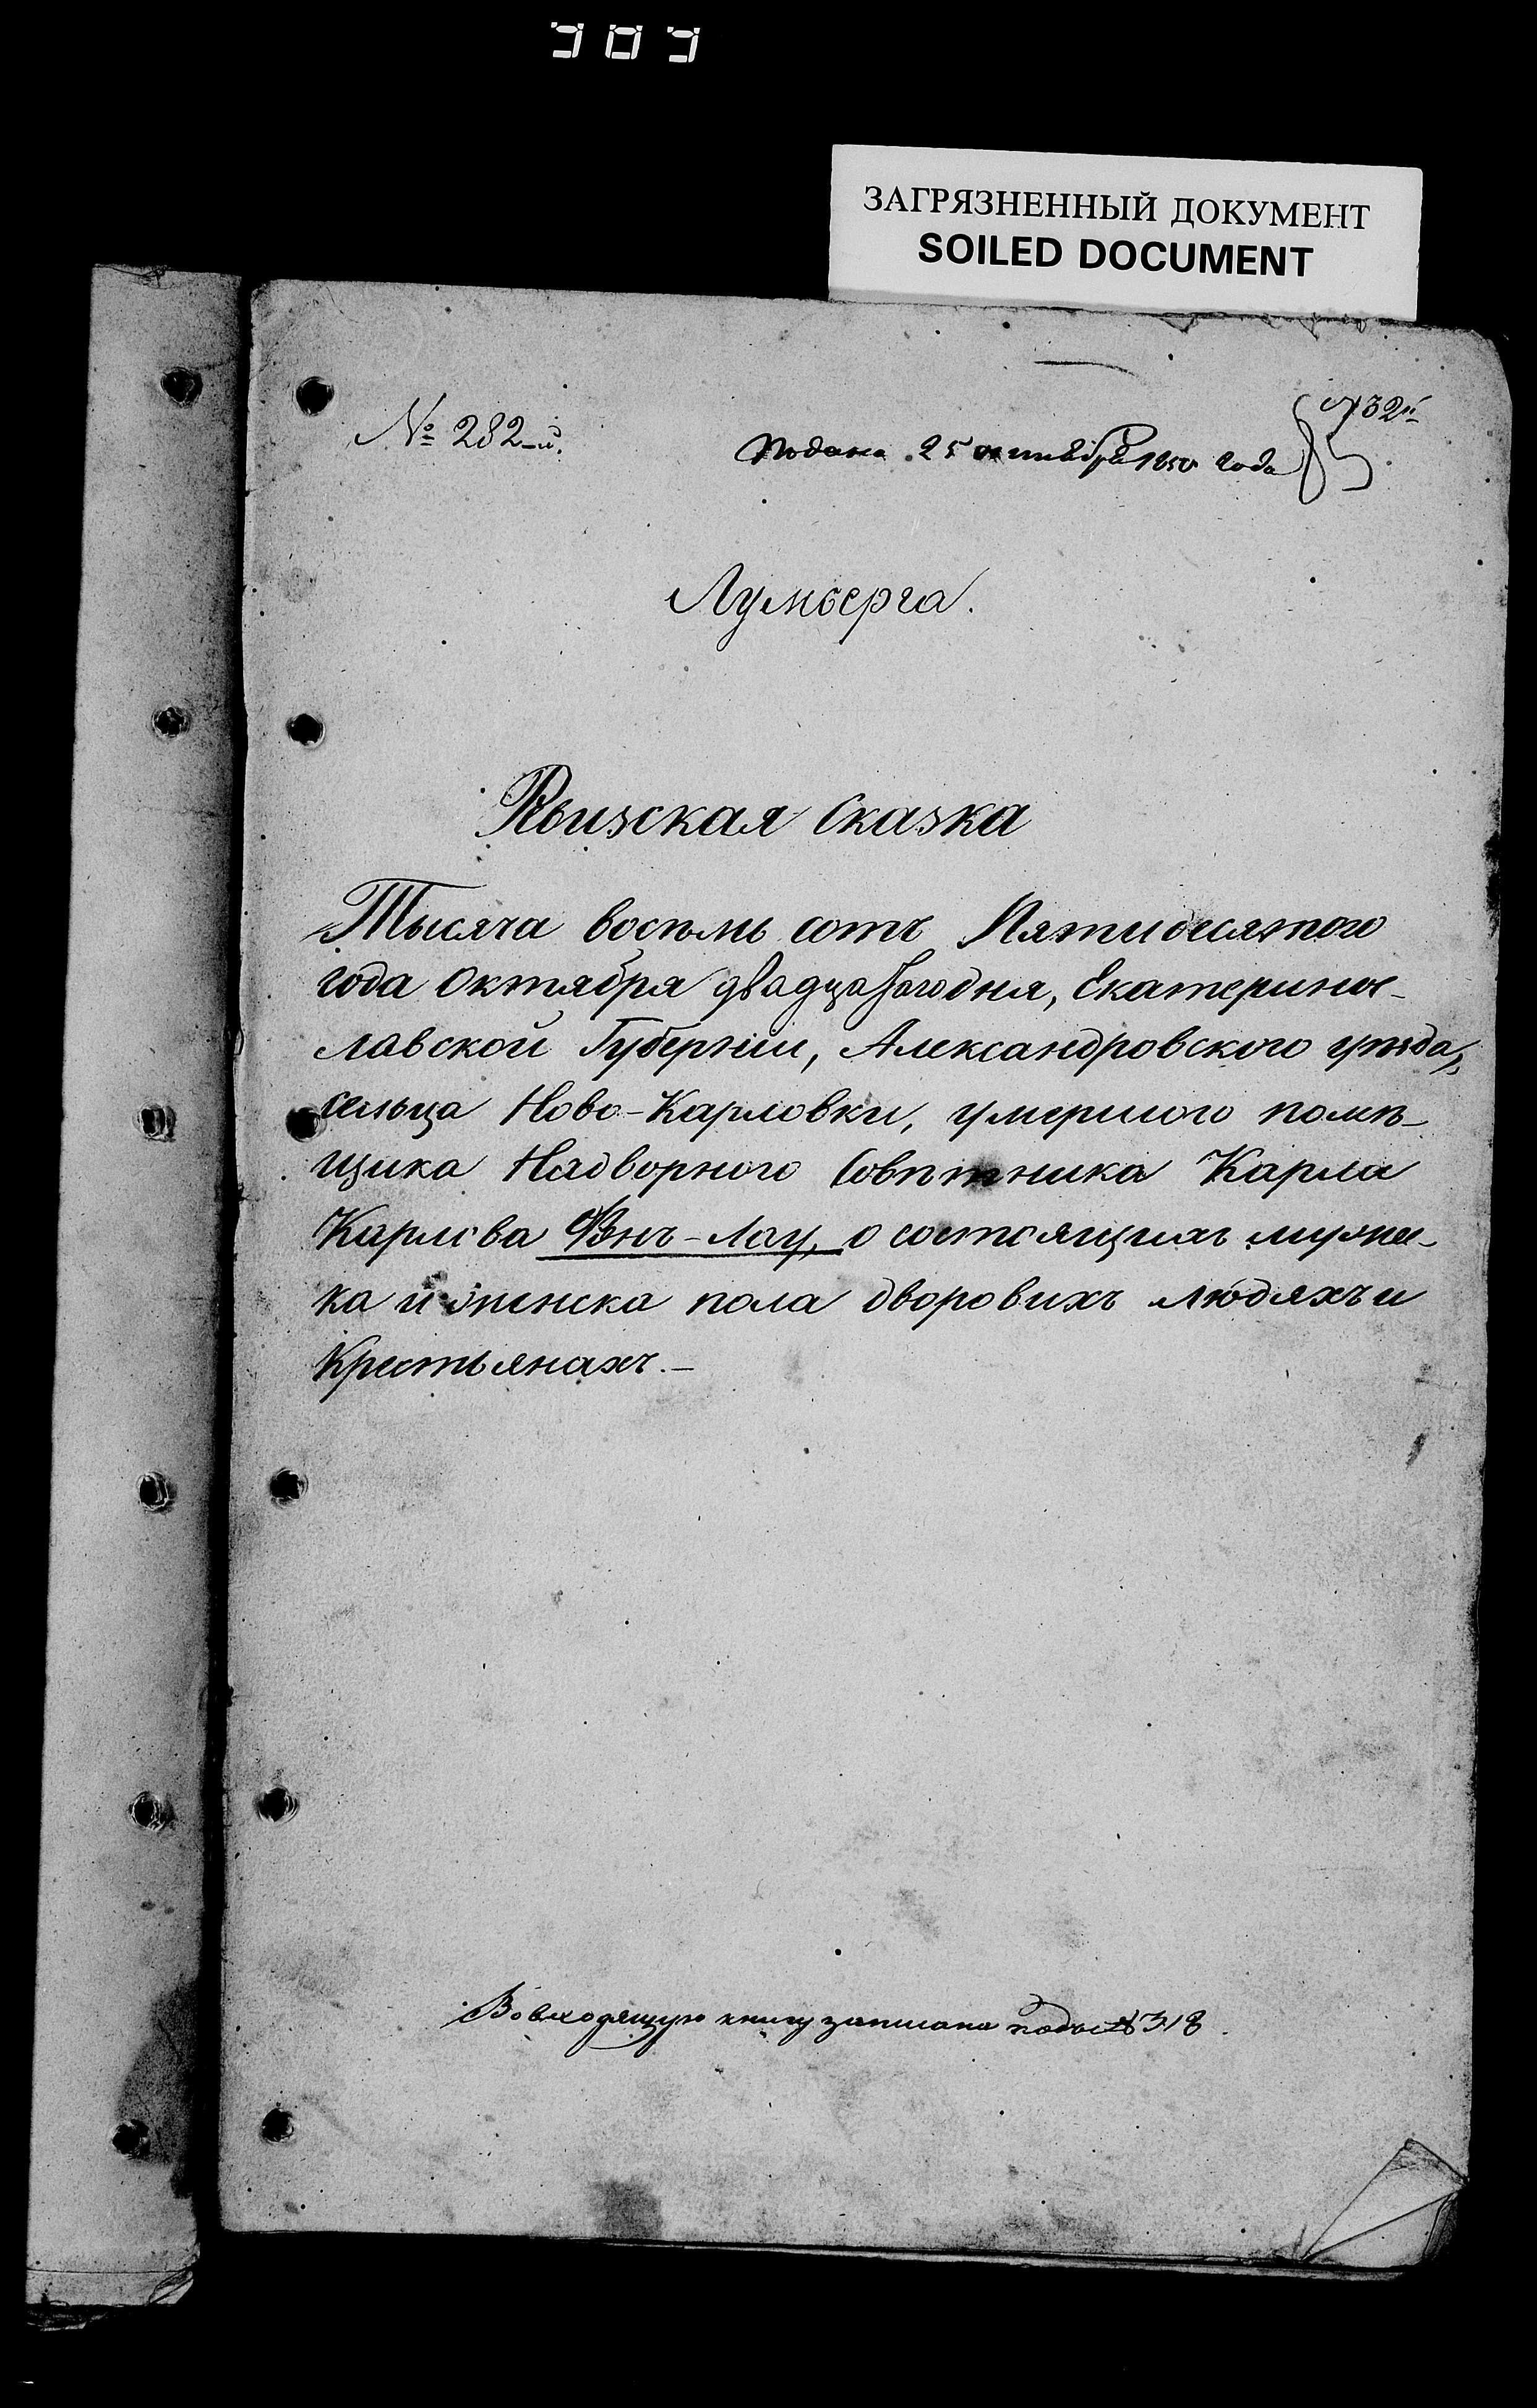 303
ЗАГРЯЗНЕННЫЙ ДОКУМЕНТ
SOILED DOCUMENT
№ 282-й.
732й
Подана 25 октября 1850 года
85
Лумберга.
Ревизская Сказка
Тысяча восемь сотъ Пятидесятого
года Октября двадцатаго дня, Екатеринос-
лавской Губерніи, Александровского уѣзда,
сельца Ново-Карловки, умершого помѣ-
щика Надворного Совѣтника Карла
Карлова Фонъ-Лау, о состоящихъ мужес-
ка и женска пола дворовихъ людяхъ и
Крестьянахъ.-
Во входящую книгу записана подъ № 318.